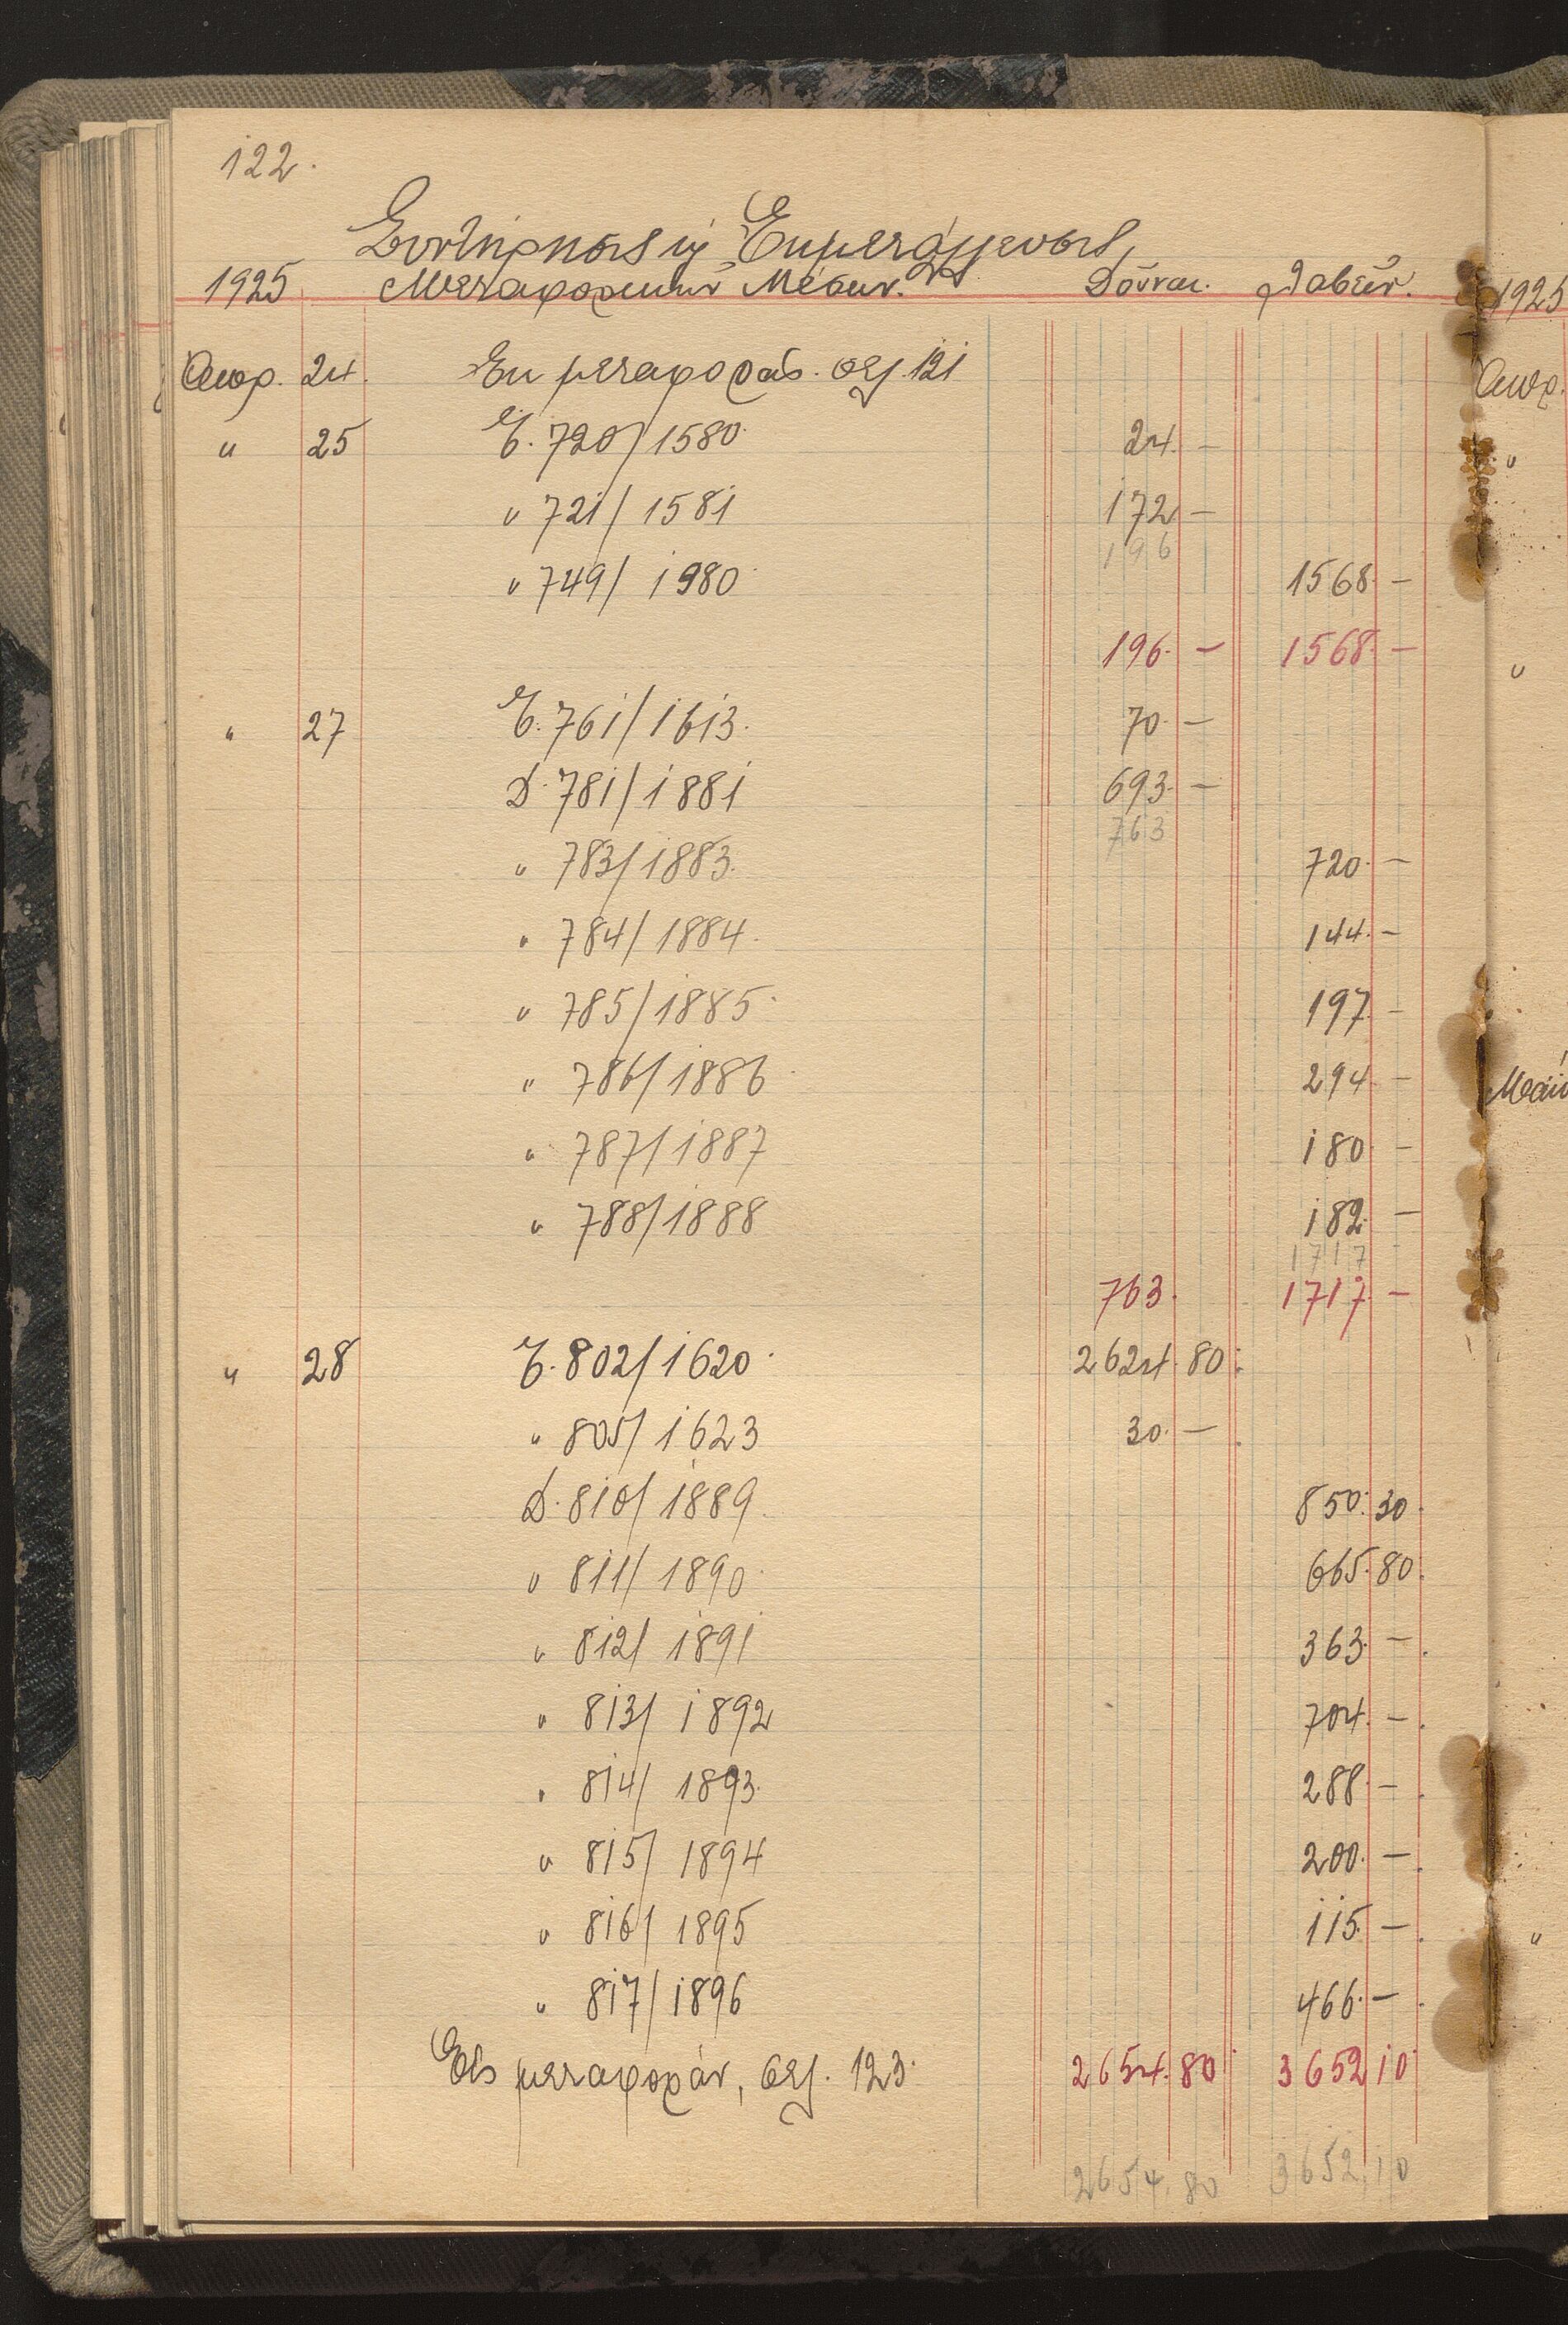 122.
Συντήρησις ἡ Ἐκμετάλλευσις
1925 Μεταφορικῶν Μέσων. Δοῦναι. Λαβεῖν.
Ἀπρ. 24. Ἐκ μεταφορᾶς. σελ. 121
" 25 Ε. 720/1580. 24. –
" 721/1581 172 –
196
" 749/1980 1568. –
196. – 1568. –
" 27 Ε. 761/1613. 70. –
Δ. 781/1881 693. –
763
" 783/1883. 720. –
" 784/1884. 144. –
" 785/1885. 197 –
" 786/1886 294 –
" 787/1887 180. –
" 788/1888 182 –
1717
763. 1717 –
" 28 Ε. 802/1620. 2624. 80.
" 805/1623 30. –
Δ. 810/1889. 850. 30.
" 811/1890. 665. 80.
" 812/1891 363. –
" 813/1892 704. –
" 814/1893. 288. –
" 815/1894 200. –
" 816/1895 115. –
" 817/1896 466. –
Εἰς μεταφορὰν, σελ. 123. 2654. 80. 3652 10
2654. 80 3652. 10
1925
Ἀπρ.
"
"
"